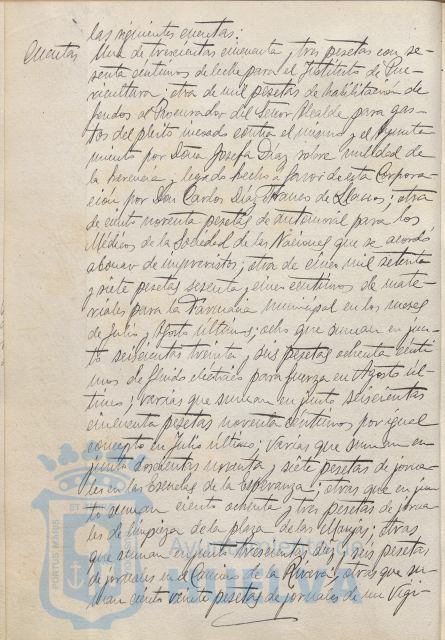 las siguientes cuentas:
Cuentas Una de trescientas cincuenta y tres pesetas con se-
senta céntimos de leche para el Instituto de Pue-
ricultura; otra de mil pesetas de habilitación de
fondos al Procurador del Señor Alcalde para gas-
tos del pleito incoado contra el mismo y el Ayunta-
miento por Doña Josefa Díaz sobre nulidad de
la herencia y legado hecho a favor de esta Corpora-
ción por Don Carlos Díaz Franco de Llanos; otra
de ciento noventa pesetas de automóvil para los
Médicos de la Sociedad de las Naciones que se acordó
abonar de imprevistos; otra de cinco mil setenta
y siete pesetas sesenta y cinco céntimos de mate-
riales para la Farmacia Municipal en los meses
de Julio y Agosto últimos; ocho que suman en jun-
to seiscientas treinta y seis pesetas ochenta cénti-
mos de fluido eléctrico para fuerza en Agosto úl-
timo; varias que suman en junto seiscientas
cincuenta pesetas noventa céntimos por igual
concepto en Julio último; varias que suman en
junto doscientas noventa y siete pesetas de jorna-
les en las Escuelas de la Esperanza; otras que en jun-
to suman ciento ochenta y tres pesetas de jorna-
les de limpieza de la plaza de las Monjas; otras
que suman en junto trescientas diez y seis pesetas
de jornales en el Camino de la Rivera; otras que su-
man ciento veinte pesetas de jornales de un Vigi-
PORTUS MARIS
Ayuntamiento de
HUELVA